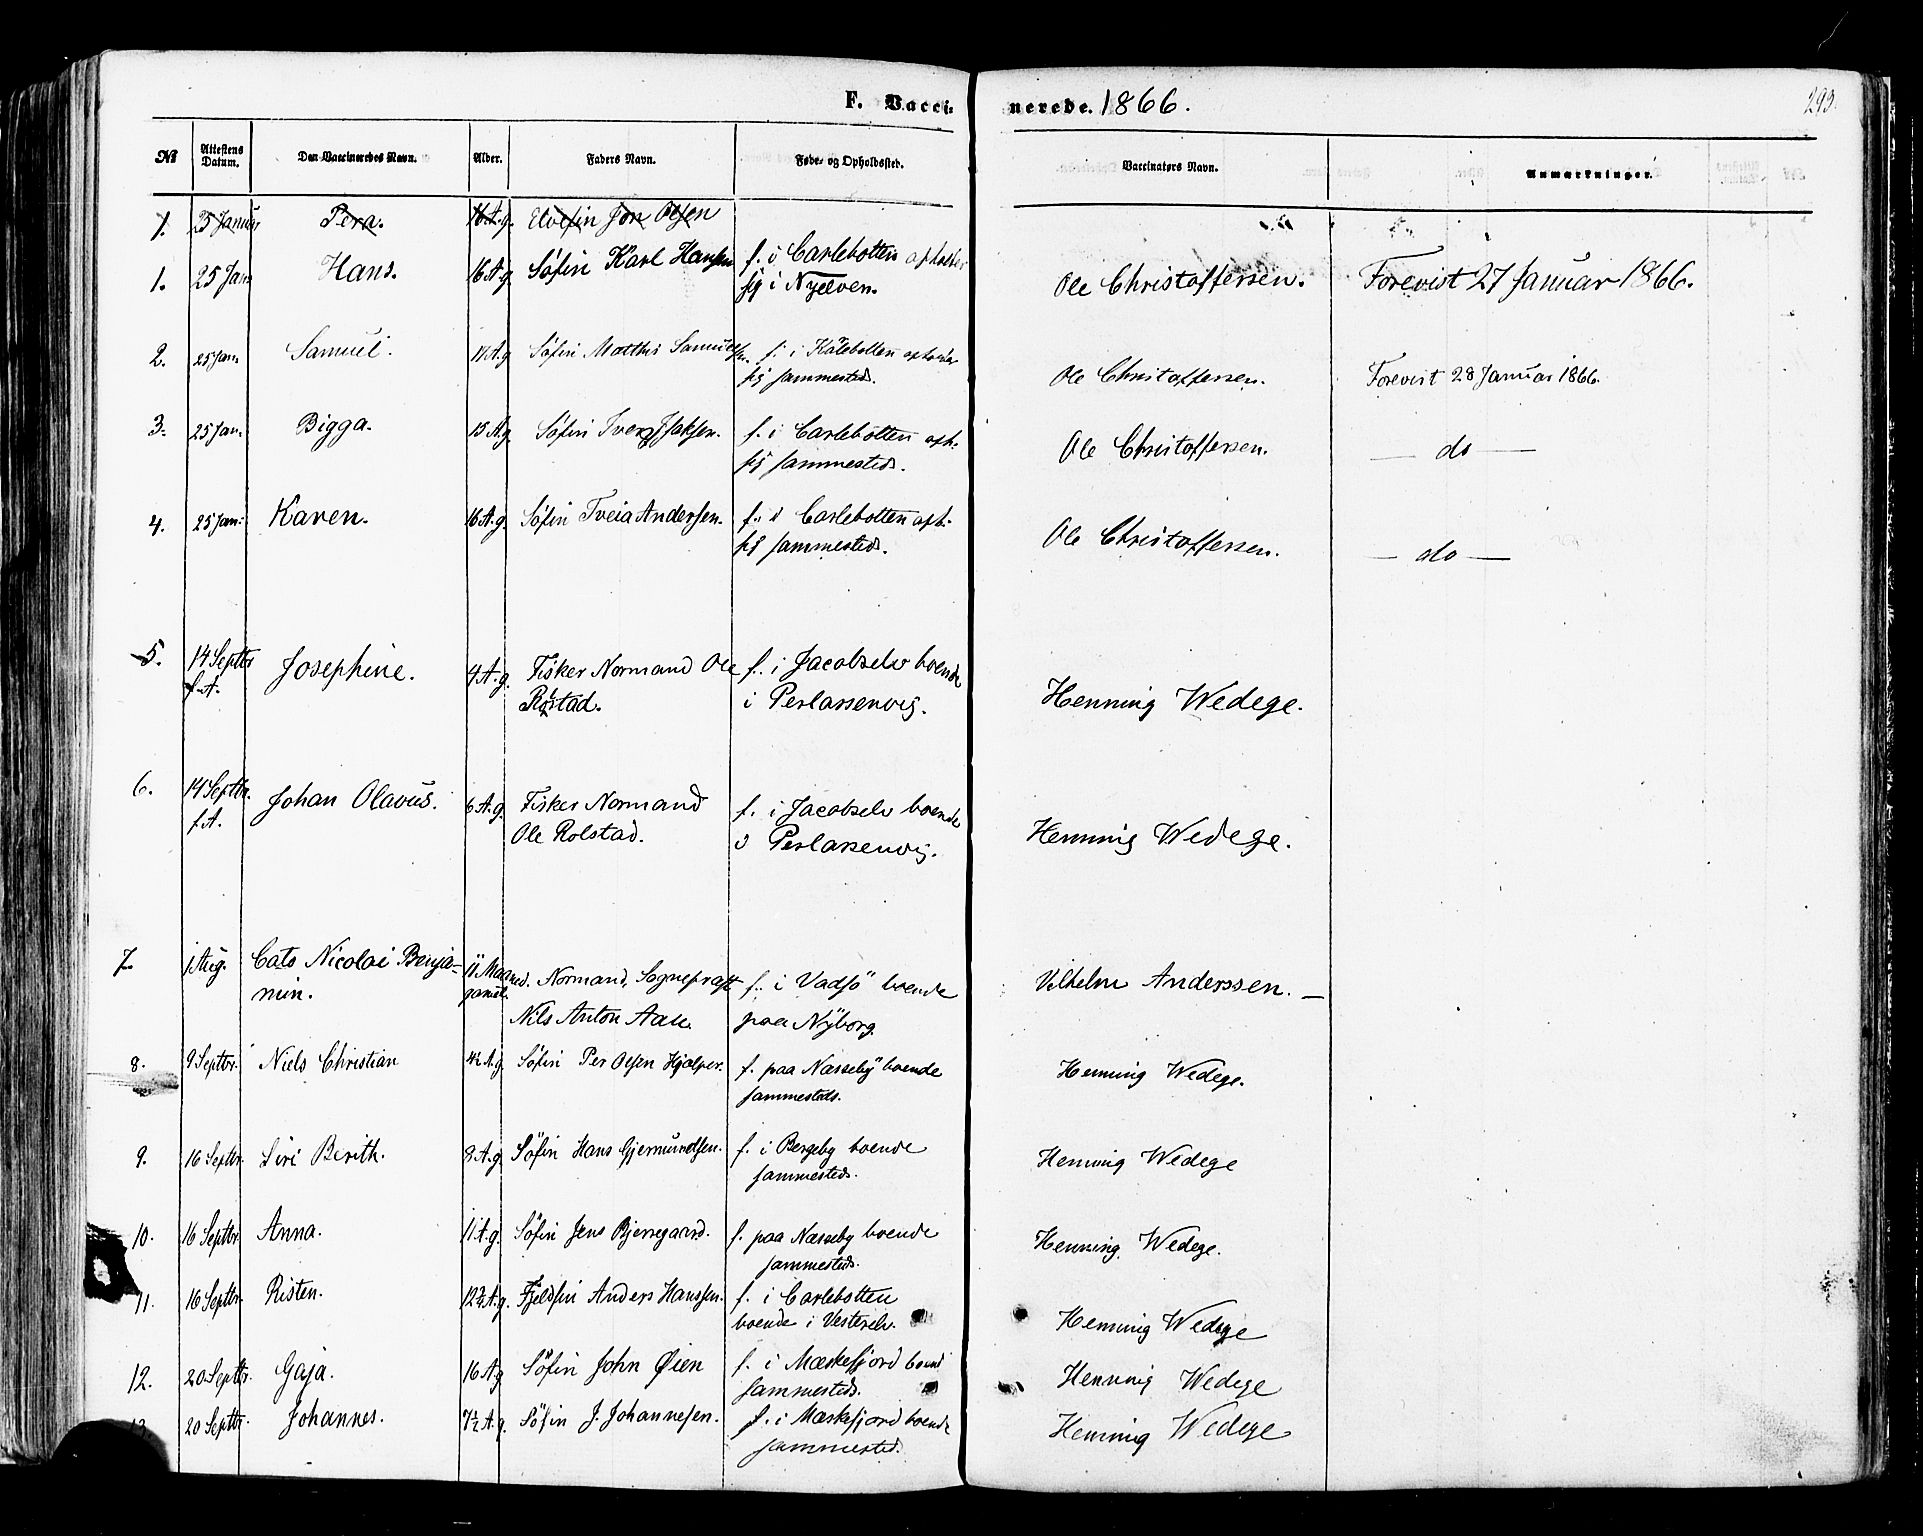 F. Vaccinerede. 1866. 293.
No Attestens Datum. Den Vaccineredes Navn. Alder. Faders Navn. Føde- og Opholdssted. Vaccinatørs Navn. Anmærkninger.
1. 25 Januar Pera. 16 A. g. Elvefin Jon Olsen
1. 25 Jan Hans. 16 A. g Søfin Karl Hansen f. i Carlebotten opholder
sig i Nyelven. Ole Christoffersen. Forevist 27 Januar 1866.
2. 25 Jan. Samuel. A. g Søfin Matthis Samuelsen. f. i opholder
sig sammesteds. Ole Christoffersen. Forevist 28 Januar 1866.
3. 25 Jan. Bigga. 15 A. g Søfin Iver Isaksen. f. i Carlebotten oph.
sig sammesteds. Ole Christoffersen. — do —
4. 25 Jan. Karen. 16 A. g Søfin Andersen. f. i Carlebotten oph.
sig sammesteds. Ole Christoffersen. — do —
5. 14 Septbr Josephine. 4 A. g. Fisker Normand Ole f. i Jacobselv boende
f. A. Rolstad. i Perlassenvig. Henning Wedege.
6. 14 Septbr. Johan Olavus. 6 A. g. Fisker Normand f. i Jacobselv boende
f. A. Ole Rolstad. i Perlassenvig. Henning Wedege.
7. 1 Aug. Cato Nicolai Benja- 11 Maaned. Normand, Sognepræst f. i Vadsö boende Vilhelm Anderssen. —
min. gamel. Nils Anton Aall. paa Nÿborg.
8. 9 Septbr. Niels Christian 4½ A. g Søfin Per Olsen Hjelper. f. paa Næsseby boende
sammesteds. Henning Wedege.
9. 16 Septbr. Siri Berith. 8 A. g Söfin Hans Gjermundsen. f. i Bergeby boende
sammesteds. Henning Wedege
10. 16 Septbr Anna. 11 A. g. Söfin Jens Bjerregaard. f. paa Næsseby boende
sammesteds. Henning Wedege.
11. 16 Septbr. Risten. 12½ A. g. Fjeldfin Anders Hanssen. f. i Carlebotten
boende i Vesterelv. Henning Wedege
12. 20 Septbr. Gaja. 16 A. g Söfin John Øien f. i Mæskefjord boend
sammesteds. Henning Wedege
13. 20 Septbr. Johannes. 7½ A. g. Söfin J. Johannesen. f. i Mæskefjord boende
sammested. Henning Wedege